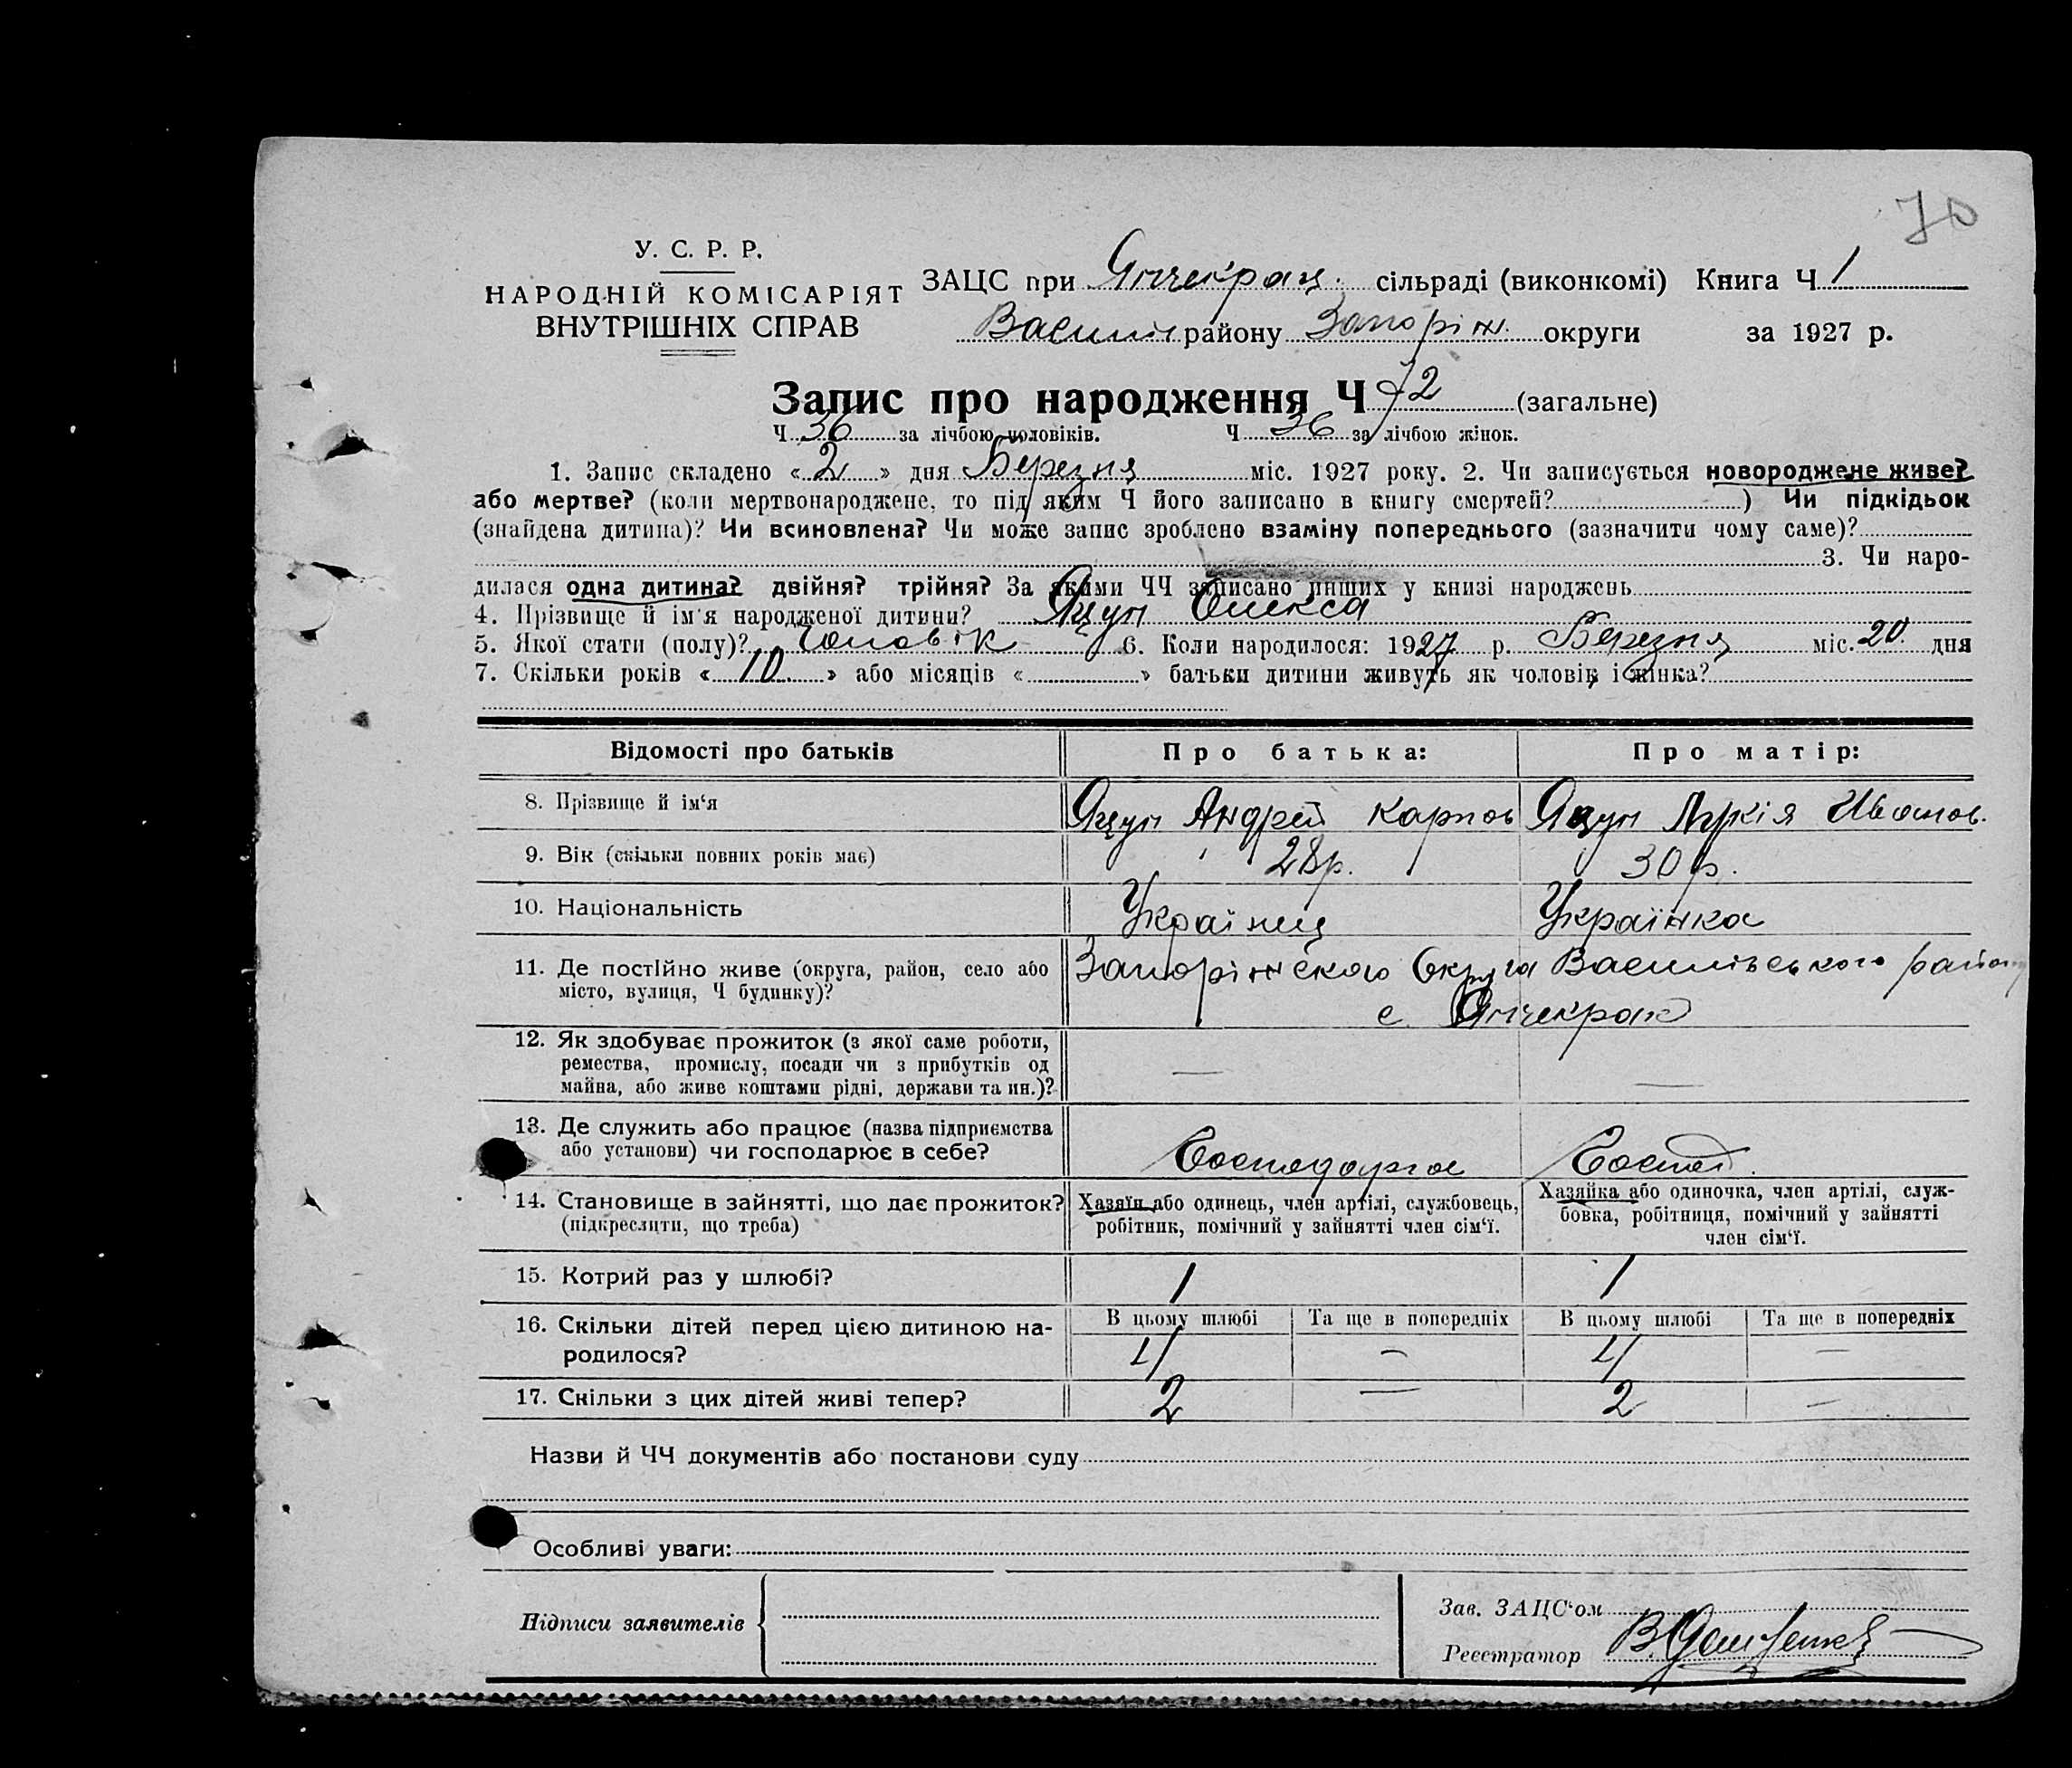 70
У. С. Р. Р.
НАРОДНІЙ КОМІСАРІЯТ
ВНУТРІШНІХ СПРАВ
ЗАЦС при Янчекрац. сільраді (виконкомі) Книга Ч 1
Василів району Запоріж. округи за 1927 р.
Запис про народження Ч 72 (загальне)
Ч 36 за лічбою чоловіків. Ч 36 за лічбою жінок.
1. Запис складено «2» дня Березня міс. 1927 року. 2. Чи записується новороджене живе?
або мертве? (коли мертвонароджене, то під яким Ч його записано в книгу смертей? ) Чи підкідьок
(знайдена дитина)? Чи всиновлена? Чи може запис зроблено взаміну попереднього (зазначити чому саме)?
3. Чи наро-
дилася одна дитина? двійня? трійня? За якими ЧЧ записано инших у книзі народжень
4. Прізвище й ім'я народженої дитини? Яцун Олекса
5. Якої стати (полу)? чоловік 6. Коли народилося: 1927 р. Березня міс. 20 дня
7. Скільки років «10» або місяців « » батьки дитини живуть як чоловік і жінка?
Відомості про батьків Про батька: Про матір:
8. Прізвище й ім‘я Яцун Андрей Карпов Яцун Иванов.
9. Вік (скільки повних років має) 28р. 30р.
10. Національність Українец Українка
11. Де постійно живе (округа, район, село або Запоріжського Округа Василівського району
місто, вулиця, Ч будинку)? с. Янчекрак
12. Як здобуває прожиток (з якої саме роботи,
ремества, промислу, посади чи з прибутків од — —
майна, або живе коштами рідні, держави та ин.)?
13. Де служить або працює (назва підприємства
або установи) чи господарює в себе? Господарює Господ.
14. Становище в зайнятті, що дає прожиток? Хазяїн або одинець, член артілі, службовець, Хазяйка або одиночка, член артілі, служ-
(підкреслити, що треба) робітник, помічний у зайнятті член сім‘ї. бовка, робітниця, помічний у зайнятті
член сім‘ї.
15. Котрий раз у шлюбі? 1 1
16. Скільки дітей перед цією дитиною на- В цьому шлюбі Та ще в попередніх В цьому шлюбі Та ще в попередніх
родилося? 4 — 4 —
17. Скільки з цих дітей живі тепер? 2 — 2 —
Назви й ЧЧ документів або постанови суду
Особливі уваги:
Підписи заявителів
Зав. ЗАЦС‘ом
Реєстратор